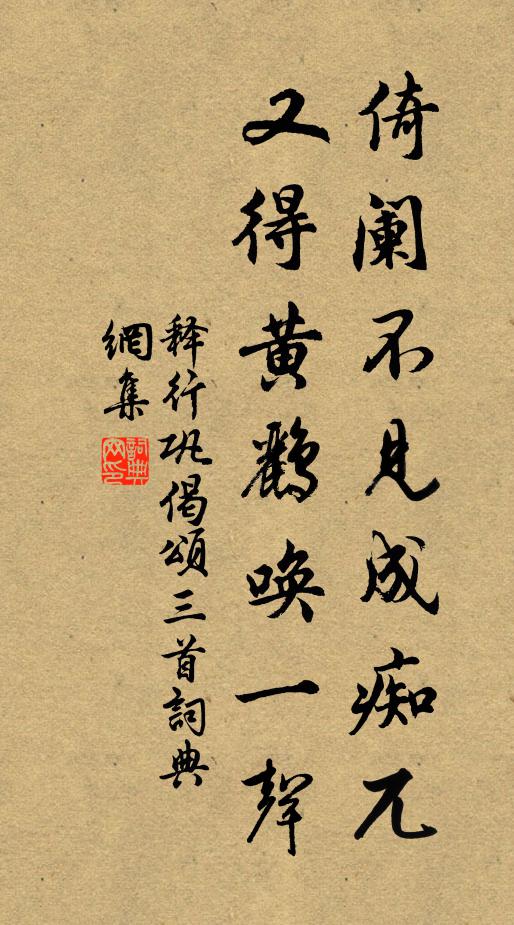 倚阑不見成痴兀
又得黃鸝喚一聲
释行巩偈頌三首詞典
網集
詞典
网印